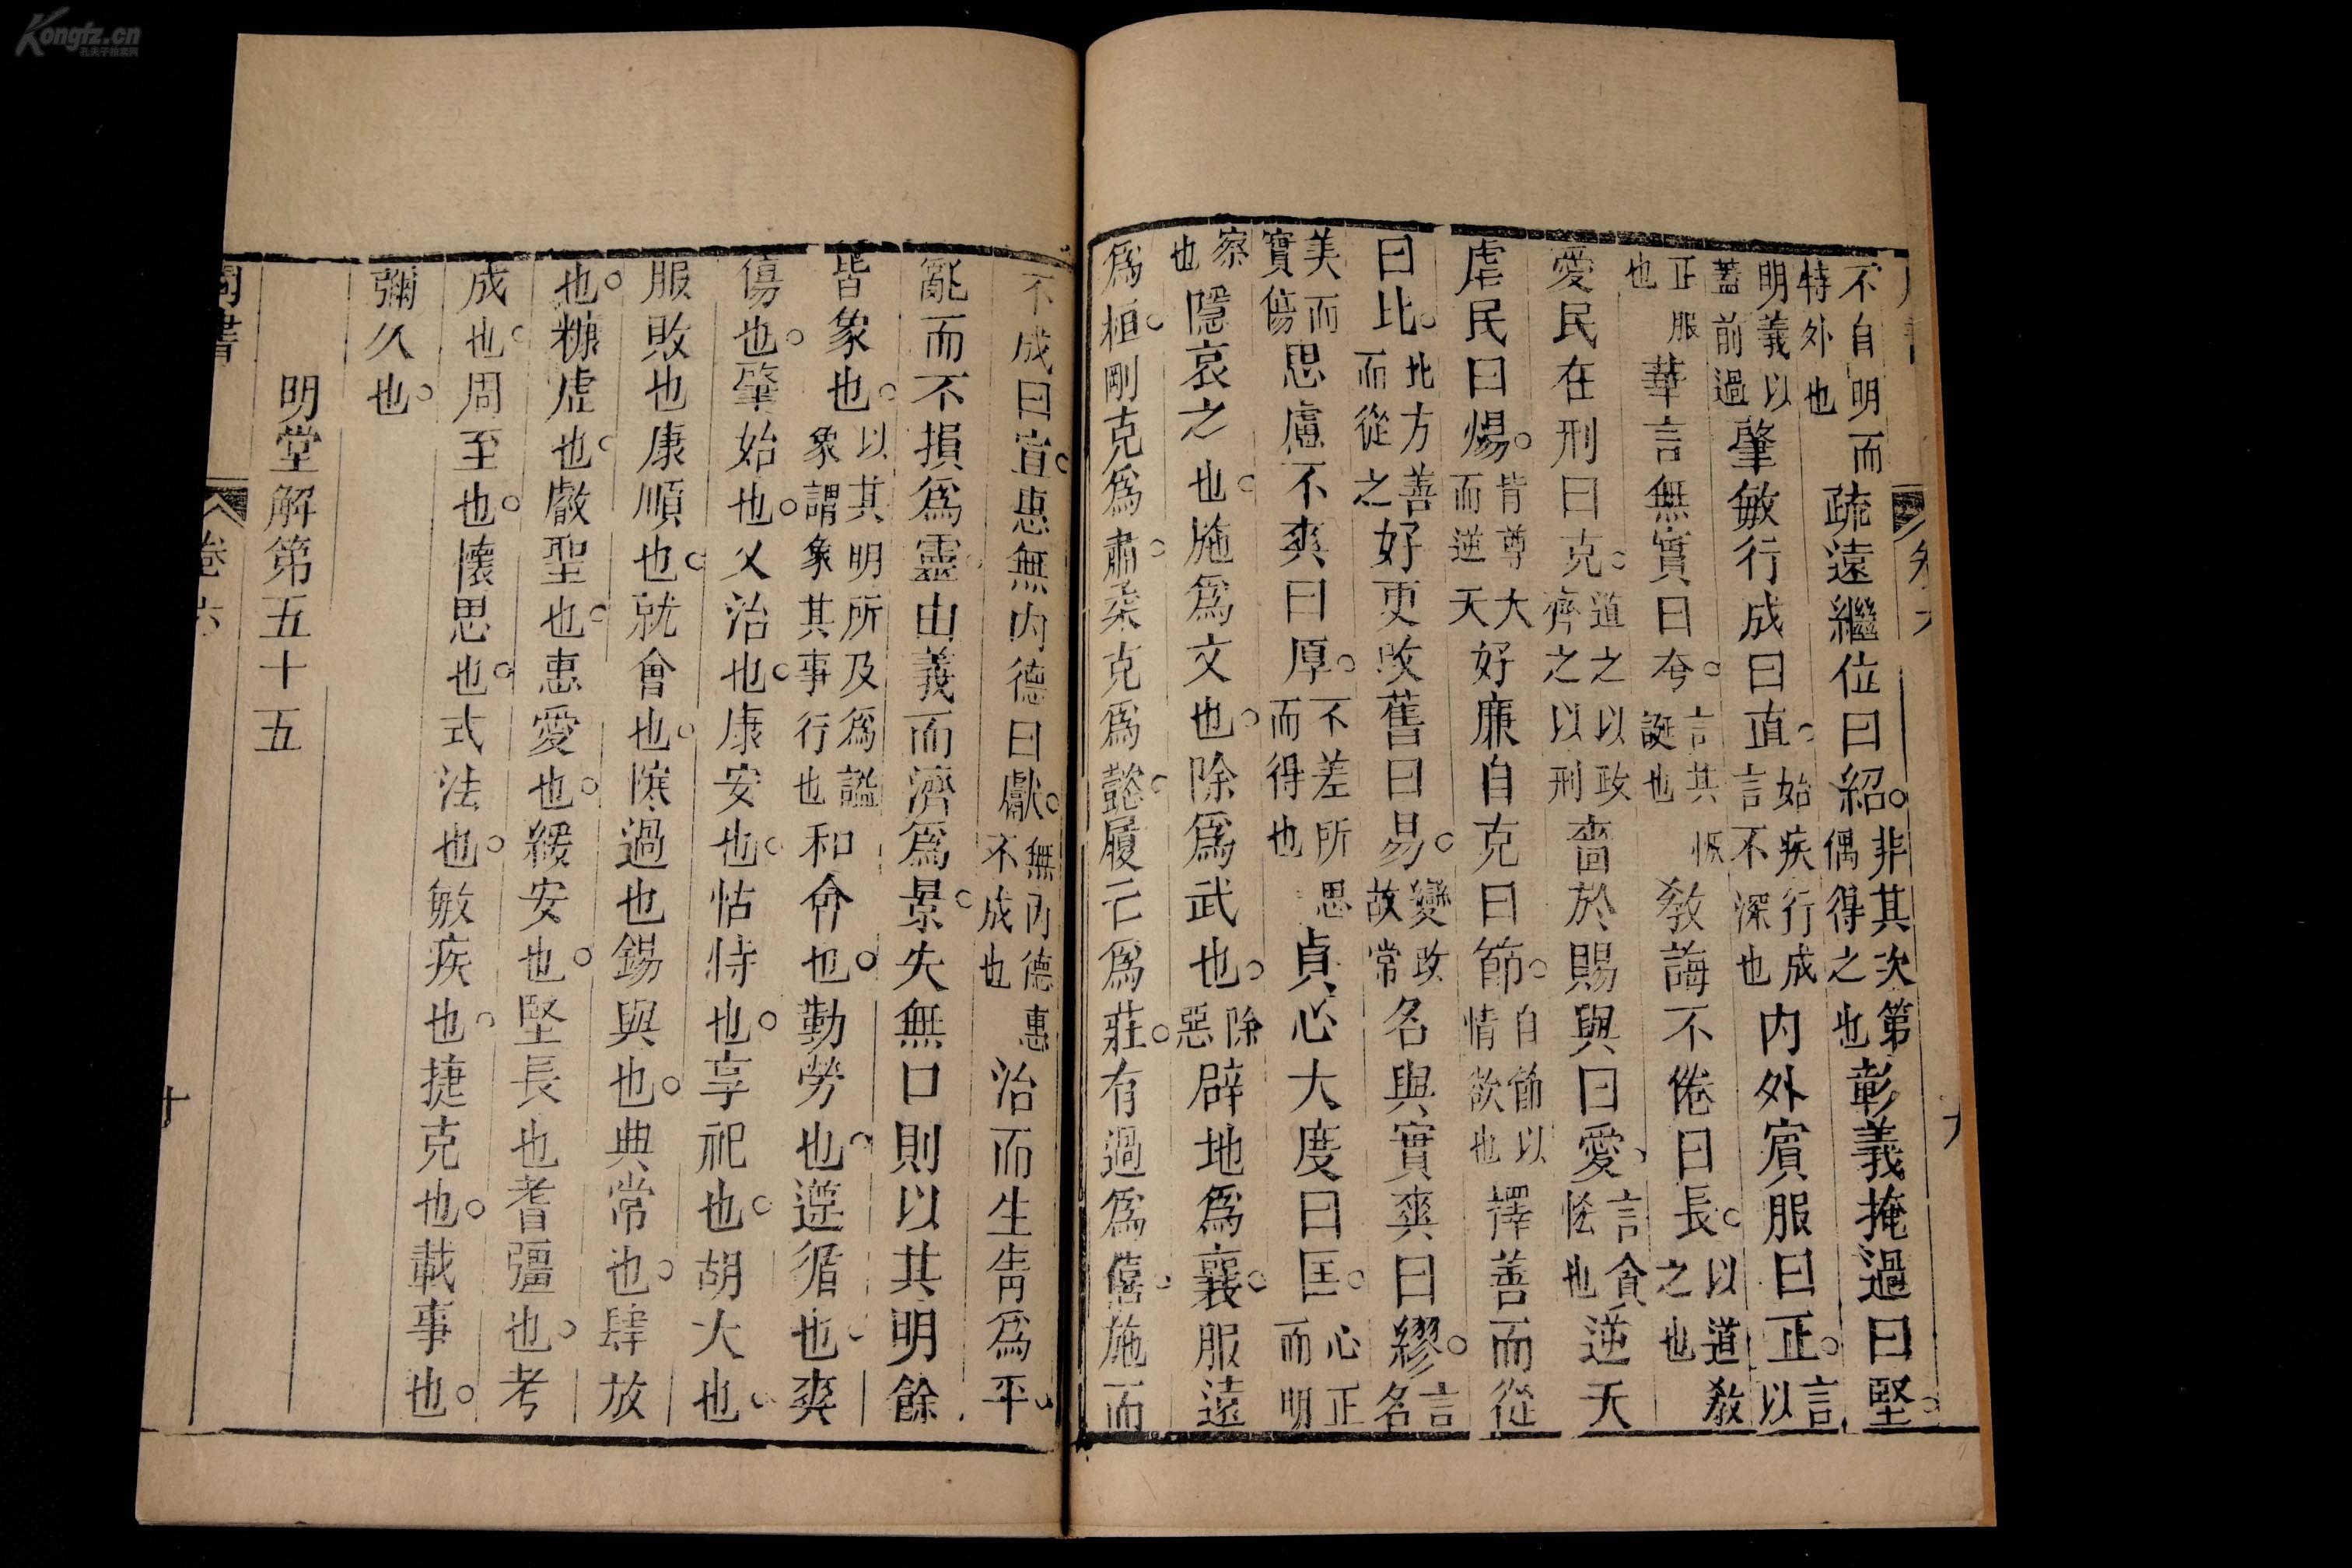 不自明而特外也疏遠繼位曰紹。非其次第偶得之也彰義掩過曰堅。
明義以蓋前過肇敏行成曰直。始疾行成言不深也内外賓服曰正。言以
正服也華言無實曰夸。言其恢誕也教誨不倦曰長。以道教之也
愛民在刑曰克。道之以政齊之以刑嗇於賜與曰愛、言貪恡也逆天
虐民曰煬。背尊大而逆天好廉自克曰節。自節以情欲也擇善而從
曰比。比方善而從之好更改舊曰易。變改故常名與實爽曰繆。言名
美而實傷思慮不爽曰厚。不差所思而得也貞心大度曰匡。心正而明
察也隱哀之也。施爲文也。除爲武也。除惡辟地爲襄。服遠
爲桓。剛克爲肅。柔克爲懿。履己爲莊。有過爲僖。施而
不成曰宣。惠無内德曰獻。無内德惠不成也治而生眚爲平。
亂而不損爲靈。由義而濟爲景。失無口則以其明餘
皆象也。以其明所及爲謚象謂象其事行也和會也。勤勞也。遵循也。爽
傷也。肇始也。乂治也。康安也。怙恃也。享祀也。胡大也。
服敗也康順也。就會也。㥶過也錫與也。典常也。肆放
也。糠虛也。叡聖也。惠愛也。綏安也。堅長也耆彊也。考
成也。周至也。懷思也。式法也。敏疾也。捷克也。載事也。
彌久也。
明堂解第五十五
周書 卷六 十